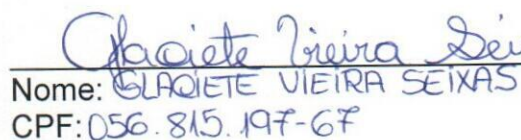 Glaciete Vieira Sei
Nome: GLACIETE VIEIRA SEIXAS
CPF: 056.815.197-67